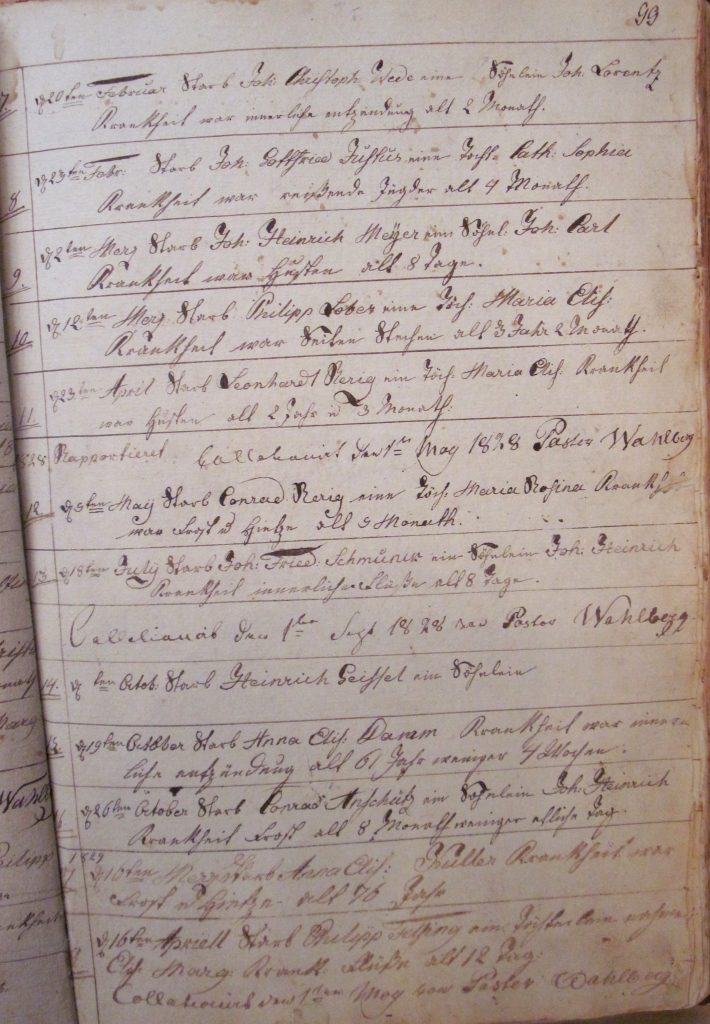 99
7. d 20ten Februar Starb Joh. Christoph Wede eine Söhnlein Joh. Lorentz
Krankheit war innerliche entzendung alt 2 Monath.
8. d 23ten Febr: Starb Joh: Gottfried Justus eine Töcht. Cath: Sophia
Krankheit war alt 4 Monath.
9. d 2ten Merz Starb Joh: Heinrich Meyer ein Söhnl: Joh: Carl
Krankheit war Husten alt 8 Tage.
10. d 12ten Merz Starb Philipp Lober eine Töch: Maria Elis:
Krankheit war Seiten Stechen alt 3 Jahr 2 Monath.
11. d 23ten April Starb Leonhardt Rerig ein Töch: Maria Elis: Krankheit
war Husten alt 2 Jahr u 3 Monath:
1828 Rapportieret den 1ten May 1828 Pastor Wahlberg
12. d 5ten May Starb Conrad Rerig eine Töch: Maria Rosina Krankh
war Frost u Hietze alt 9 Monath.
13. d 18ten July Starb Joh: Fried: Schmunk ein Söhnlein Joh: Heinrich
Krankheit innerliche alt 8 Tage.
den 1ten Sept 1828 von Pastor Wahlberg
14. d ten Octob: Starb Heinrich Geissel ein Söhnlein
15. d 19ten October Starb Anna Elis: Damm Krankheit war inner
liche entzündung alt 61 Jahr weniger 4 Wochen.
16 d 26ten October Starb Conrad Anschütz ein Söhnlein Joh: Heinrich
Krankheit Frost alt 8 Monath weniger etliche Tag.
1829
17 d 16ten Merz starb Anna Elis: Müller Krankheit war
Frost u Hietze alt 76 Jahr
d 16ten Aprill Starb Philipp ein
Elis: Marg: Krank: alt 12 Tag:
den 1ten May von Pastor Wahlberg